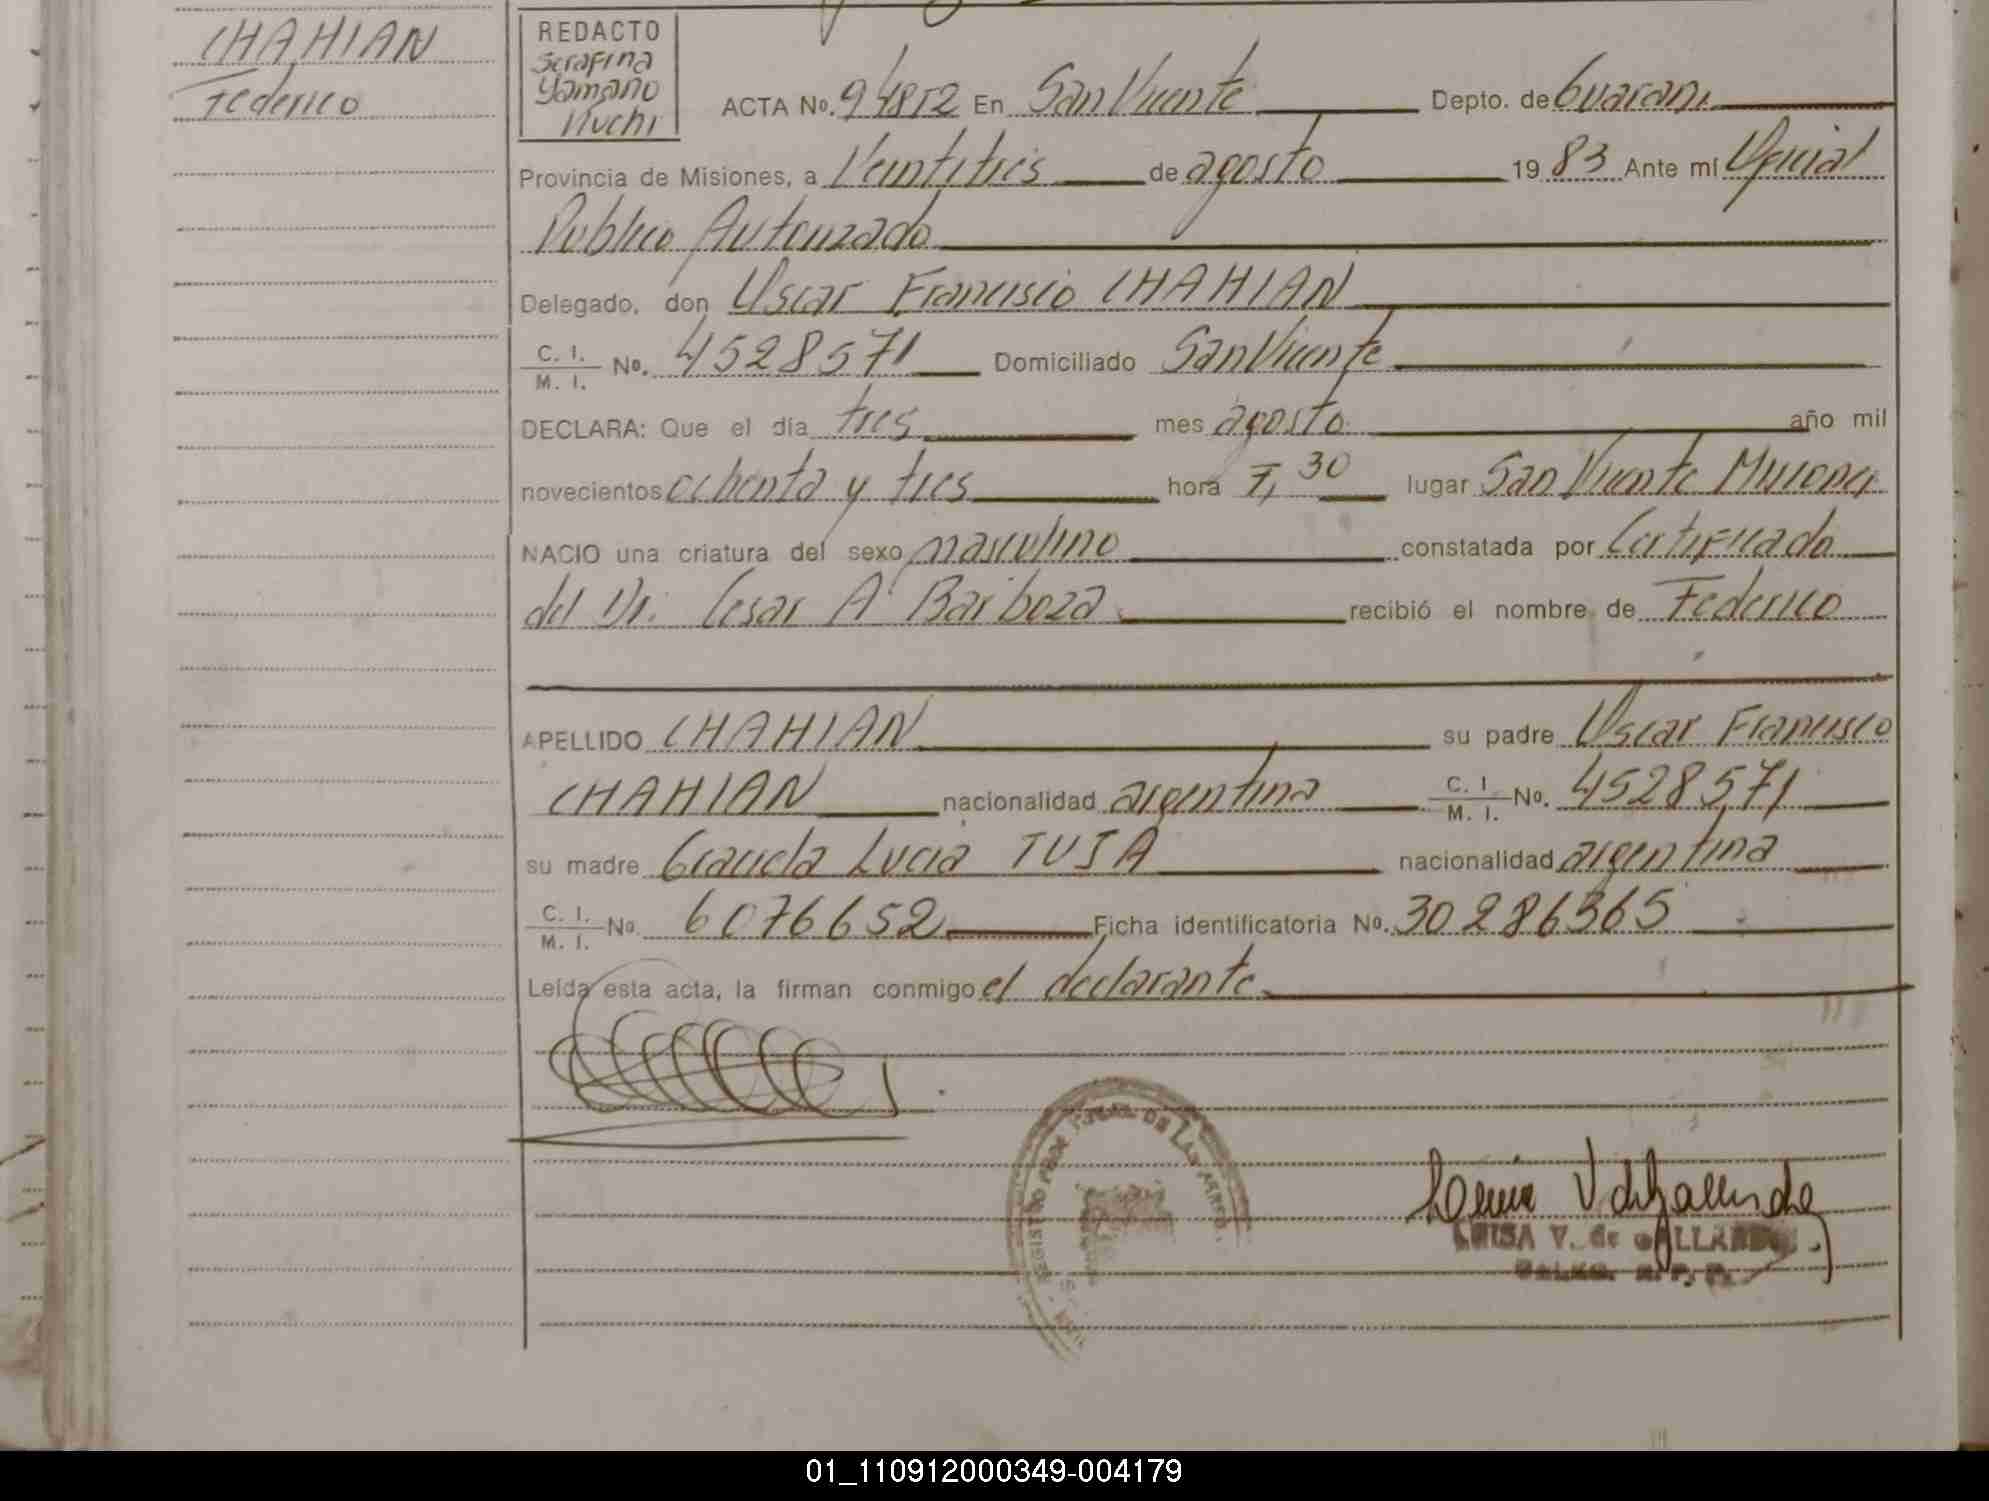 CHAHIAN
Federico
REDACTO
Serafina
Yamaño
Kuchi
ACTA No. 94852 En San Vicente Depto. de Guarani
Provincia de Misiones, a Veintitrés de agosto 1983 Ante mí Oficial
Público Autorizado
Delegado, don Oscar Francisco CHAHIAN
C. I.
M. I. No. 4528571 Domiciliado San Vicente
DECLARA: Que el día tres mes agosto año mil
novecientos ochenta y tres hora 7,30 lugar San Vicente Misiones
NACIO una criatura del sexo masculino constatada por Certificado
del Dr. Cesar A Barboza recibió el nombre de Federico
APELLIDO CHAHIAN su padre Oscar Francisco
CHAHIAN nacionalidad argentina C. I. M. I. No. 4528571
su madre Graciela Lucia TUSA nacionalidad argentina
C. I. M. I. No 6076652 Ficha identificatoria No. 30286365
Leída esta acta, la firman conmigo el declarante
REGISTRO DE LAS PERSO
LUISA V. de GALLARDO
01_110912000349-004179